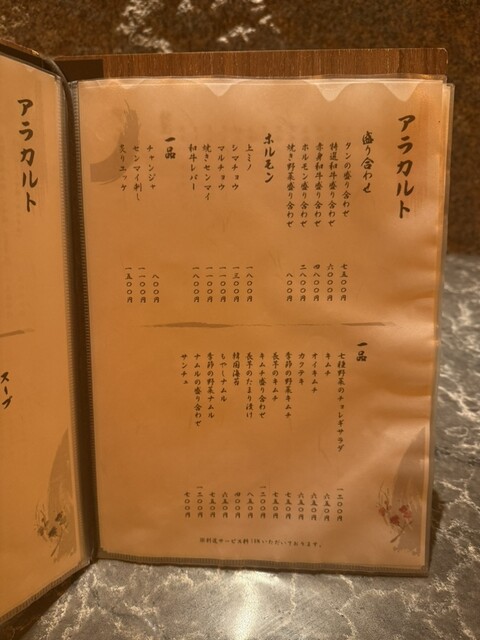 アラカルト
盛り合わせ
タンの盛り合わせ 七五〇〇円
特選和牛盛り合わせ 六〇〇〇円
赤身和牛盛り合わせ 四八〇〇円
ホルモン盛り合わせ 二八〇〇円
焼き野菜盛り合わせ 八〇〇円
ホルモン
上ミノ 一八〇〇円
シマチョウ 一三〇〇円
マルチョウ 一一〇〇円
焼きセンマイ 一一〇〇円
和牛レバー 一八〇〇円
一品
チャンジャ 八〇〇円
センマイ刺し 一一〇〇円
炙りユッケ 一五〇〇円
一品
七種野菜のチョレギサラダ 一二〇〇円
キムチ 六五〇円
オイキムチ 六五〇円
カクテキ 六五〇円
季節の野菜キムチ 七五〇円
長芋のキムチ 七五〇円
キムチ盛り合わせ 一二〇〇円
長芋のたまり漬け 八五〇円
韓国海苔 四〇〇円
もやしナムル 六五〇円
季節の野菜ナムル 七五〇円
ナムルの盛り合わせ 一二〇〇円
サンチュ 七〇〇円
※別途サービス料10%いただいております。
アラカルト
スープ